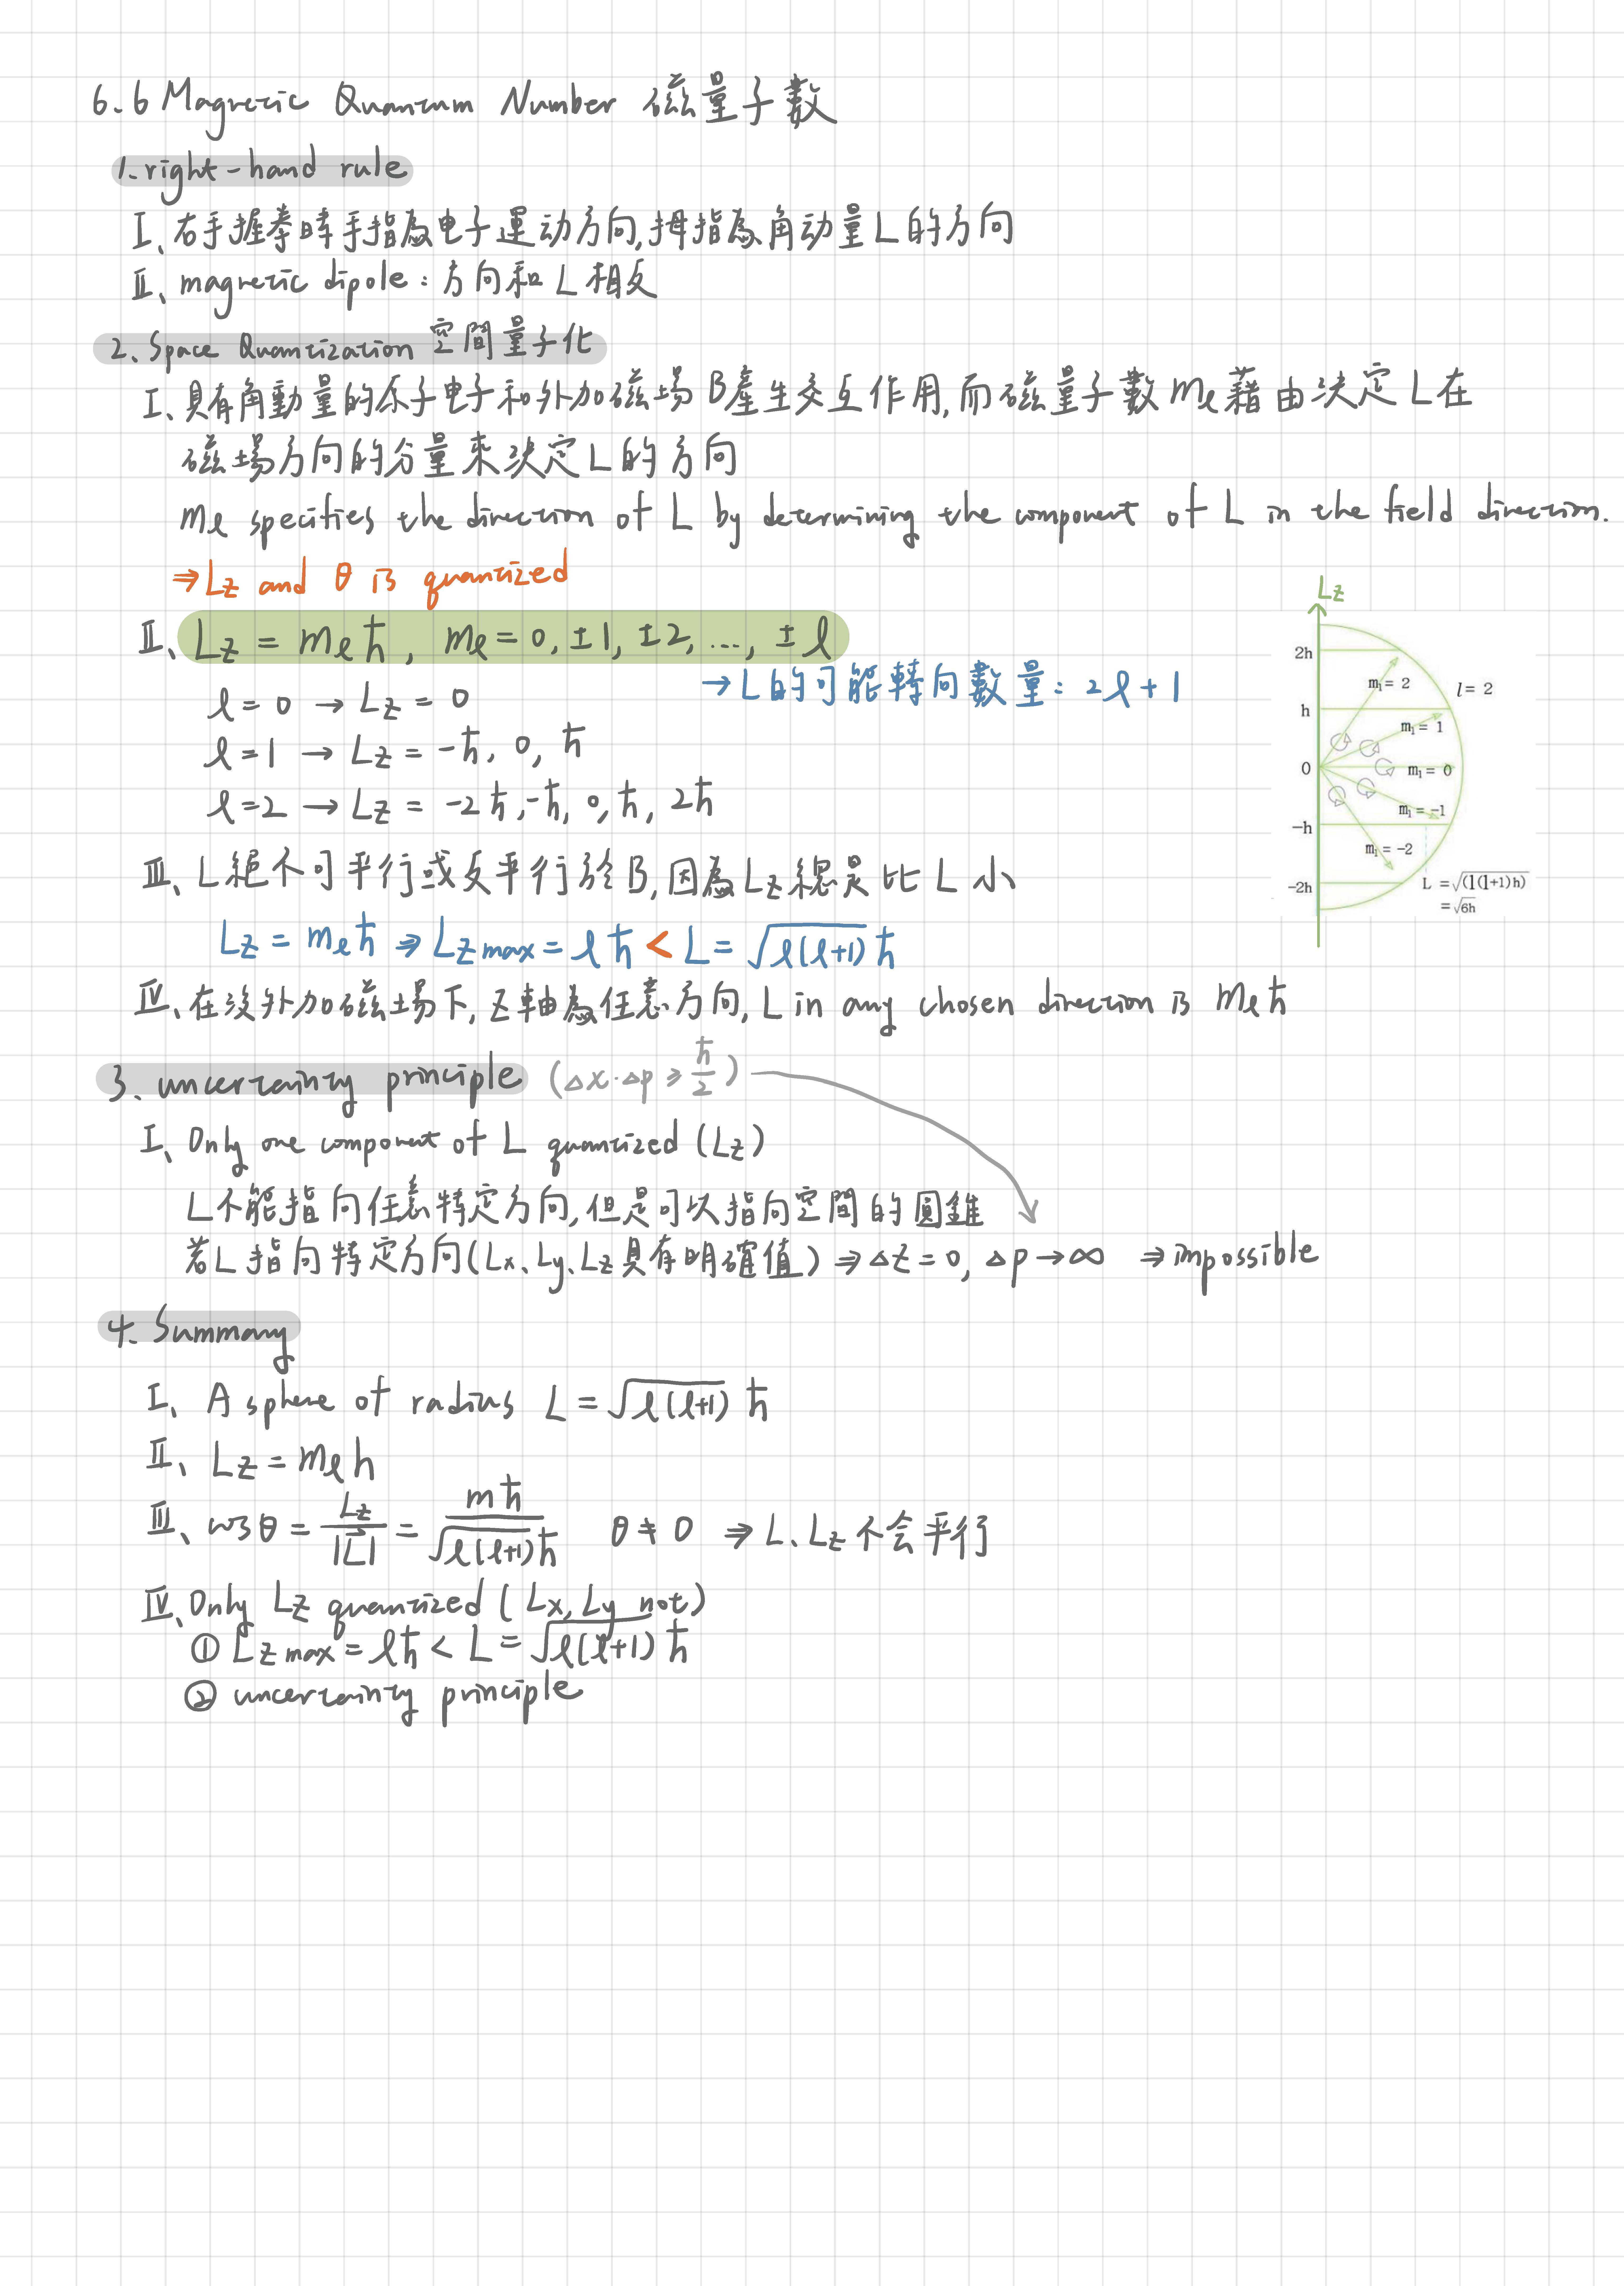 6.6 Magnetic Quantum Number 磁量子數
1. right-hand rule
I、右手握拳時手指為电子運动方向,拇指為角动量L的方向
II、magnetic dipole：方向和L相反
2、Space Quantization 空間量子化
I、具有角動量的原子电子和外加磁場B產生交互作用,而磁量子數mℓ藉由決定L在
磁場方向的分量來決定L的方向
mℓ specifies the direction of L by determining the component of L in the field direction.
⇒Lz and θ is quantized
II、Lz = mℓħ, mℓ = 0, ±1, ±2, ..., ±ℓ
→L的可能轉向數量：2ℓ+1
ℓ = 0 → Lz = 0
ℓ = 1 → Lz = -ħ, 0, ħ
ℓ = 2 → Lz = -2ħ, -ħ, 0, ħ, 2ħ
Lz
2h
ml = 2
l = 2
h
ml = 1
0
ml = 0
ml = -1
-h
ml = -2
-2h
L = √(l(l+1)h)
= √6h
III、L絕不可平行或反平行於B,因為Lz總是比L小
Lz = mℓħ ⇒ Lz max = ℓħ < L = √ℓ(ℓ+1) ħ
IV、在沒外加磁場下,Z軸為任意方向,L in any chosen direction is mℓħ
3. uncertainty principle (Δx·Δp ≥ ħ/2)
I、Only one component of L quantized (Lz)
L不能指向任意特定方向,但是可以指向空間的圓錐
若L指向特定方向(Lx、Ly、Lz具有明確值) ⇒ Δz = 0, Δp → ∞ ⇒ impossible
4. Summary
I、A sphere of radius L = √ℓ(ℓ+1) ħ
II、Lz = mℓh
III、cosθ = Lz/|L⃗| = mħ/√ℓ(ℓ+1)ħ θ ≠ 0 ⇒ L、Lz不会平行
IV、Only Lz quantized (Lx, Ly not)
① Lz max = ℓħ < L = √ℓ(ℓ+1) ħ
② uncertainty principle